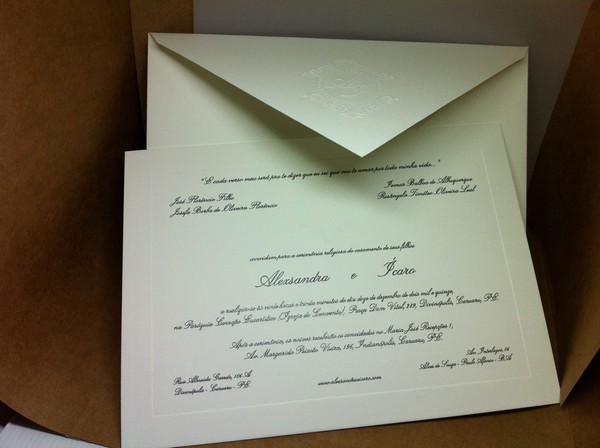 "E cada verso meu será pra te dizer que eu sei que vou te amar por toda minha vida..."
José Florêncio Filho
Josefa Borba de Oliveira Florêncio
Ivomar Bulhões de Albuquerque
Rosangela Timóteo Oliveira Leal
convidam para a cerimônia religiosa do casamento de seus filhos
Alexsandra e Ícaro
a realizar-se às vinte horas e trinta minutos do dia doze de dezembro de dois mil e quinze,
na Paróquia Coração Eucarístico (Igreja do Convento), Praça Dom Vital, 219, Divinópolis, Caruaru, PE.
Após a cerimônia, os noivos receberão os convidados no Maria José Recepções 1,
Av. Margarida Peixoto Vieira, 196, Indianópolis, Caruaru, PE.
Rua Almeida Garrét, 106 A
Divinópolis - Caruaru - PE
Av. Interlagos, 04
- Paulo Afonso - BA